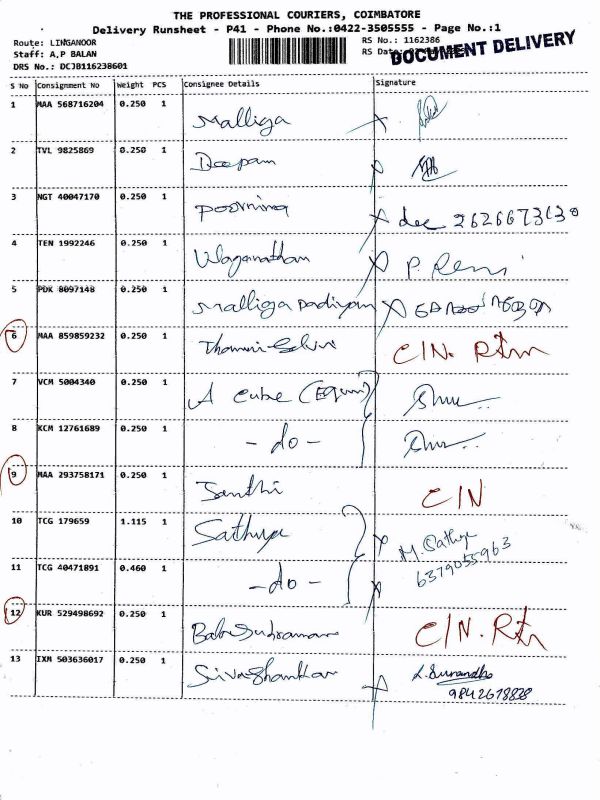 THE PROFESSIONAL COURIERS, COIMBATORE
Delivery Runsheet - P41 - Phone No.:0422-3505555 - Page No.:1
Route: LINGANOOR
Staff: A,P BALAN
DRS No.: DCJB116238601
RS No.: 1162386
RS Date:
DOCUMENT DELIVERY
S No Consignment No Weight PCS Consignee Details Signature
1 MAA 568716204 0.250 1 Malliga
2 TVL 9825869 0.250 1 Deepam
3 NGT 40047170 0.250 1 Poornima dec 2626673630
4 TEN 1992246 0.250 1 Ulaganathan P. Reni
5 PDK 8097148 0.250 1 Malliga Padiyam
6 MAA 859859232 0.250 1 C/N. Rtn
7 VCM 5004340 0.250 1 A Cube (Equn)
8 KCM 12761689 0.250 1 - do -
9 MAA 293758171 0.250 1 Santhi C/N
10 TCG 179659 1.115 1 Sathya M. Sathya
6379055963
11 TCG 40471891 0.460 1 - do -
12 KUR 529498692 0.250 1 Babu C/N. Rtn
13 IXM 503636017 0.250 1 Sivashankar
9842678838